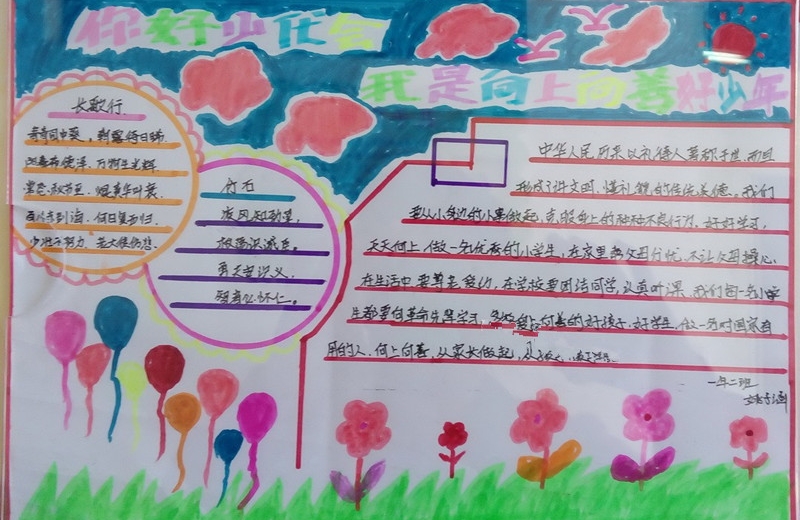 你好少代会
天天
我是向上向善好少年
长歌行
青青园中葵，朝露待日晞。
阳春布德泽，万物生光辉。
常恐秋节至，焜黄华叶衰。
百川东到海，何日复西归。
少壮不努力，老大徒伤悲。
竹石
疾风知劲草，
板荡识诚臣。
勇夫安识义，
智者心怀仁。
中华人民历来以礼待人著称于世，而且
形成了讲文明，懂礼貌的传统美德。我们
要从小身边的小事做起，克服身上的种种不良行为。好好学习，
天天向上，做一名优秀的小学生，在家里为父母分忧，不让父母操心。
在生活中要尊老爱幼，在学校要团结同学，认真听课，我们每一名小学
生都要向革命先辈学习，争做向上向善的好孩子，好学生，做一名对国家有
用的人。向上向善，从家长做起，从
一年二班